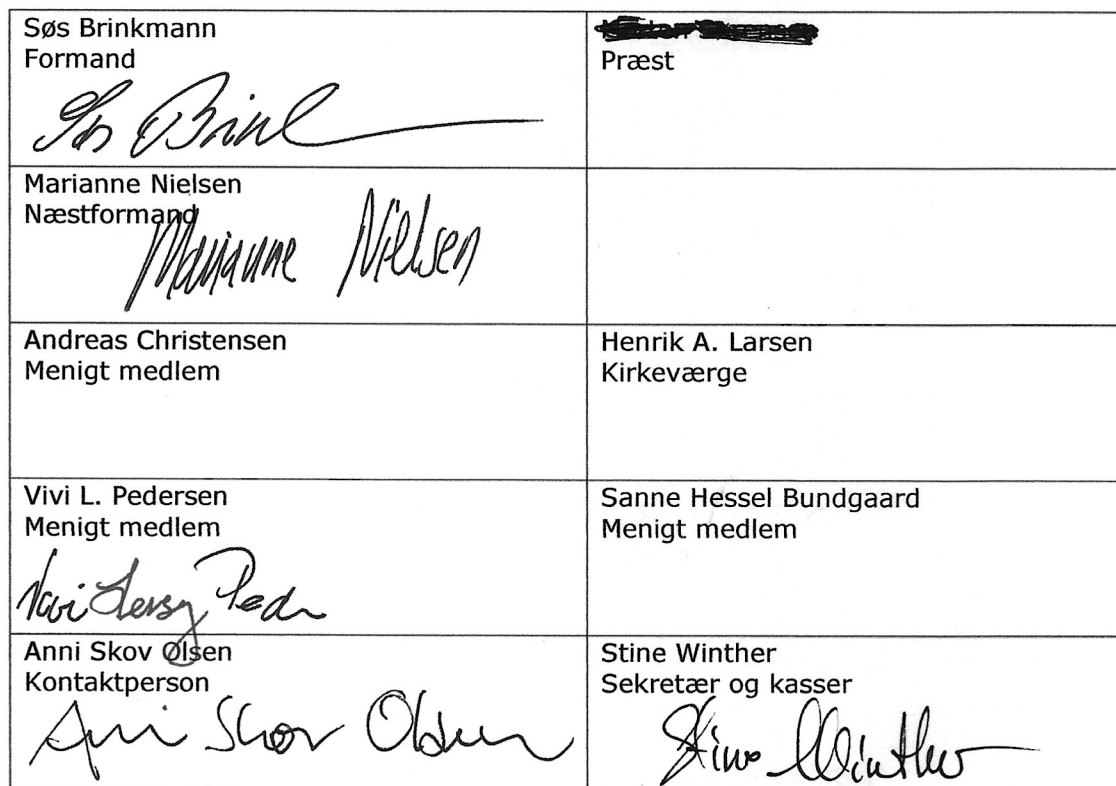 Søs Brinkmann
Formand
Søs Brink
Præst
Marianne Nielsen
Næstformand
Marianne Nielsen
Andreas Christensen
Menigt medlem
Henrik A. Larsen
Kirkeværge
Vivi L. Pedersen
Menigt medlem
Sanne Hessel Bundgaard
Menigt medlem
Anni Skov Olsen
Kontaktperson
Anni Skov Olsen
Stine Winther
Sekretær og kasser
Stine Winther